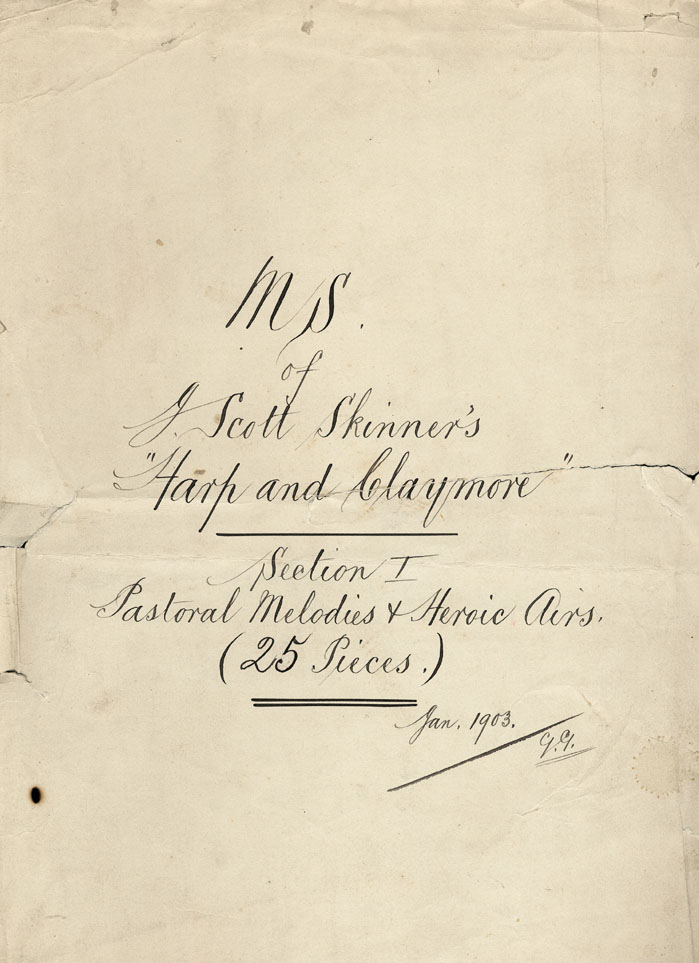 MS.
of
J. Scott Skinner's
"Harp and Claymore"
Section I
Pastoral Melodies & Heroic Airs.
(25 Pieces.)
Jan. 1903.
G.G.